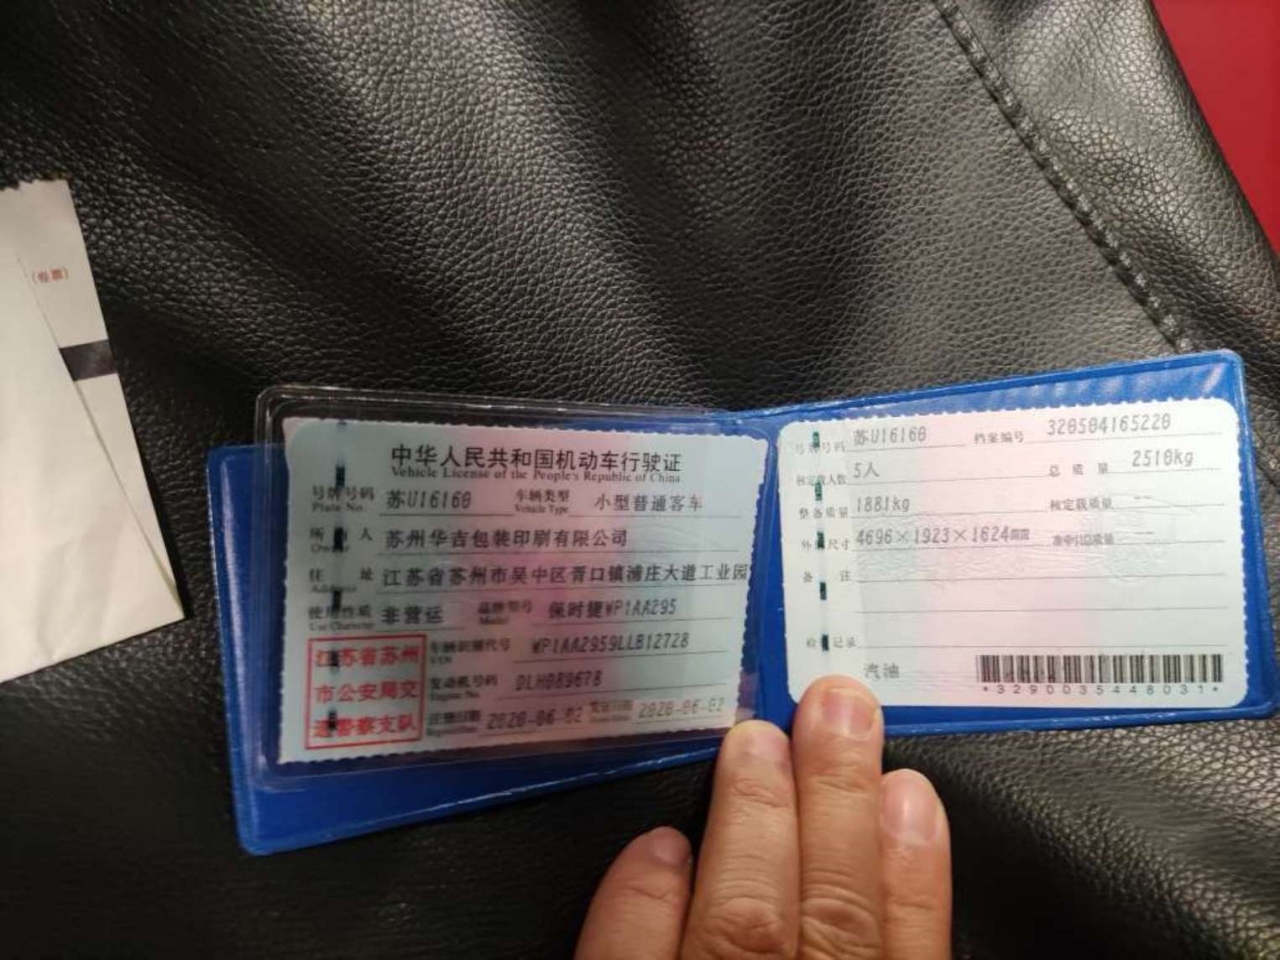 (卷票)
中华人民共和国机动车行驶证
Vehicle License of the People's Republic of China
号牌号码 苏U16160 车辆类型 小型普通客车
Plate No. Vehicle Type
所 人 苏州华吉包装印刷有限公司
Owner
住 址 江苏省苏州市吴中区胥口镇浦庄大道工业园
Address
使用性质 非营运 品牌型号 保时捷WP1AA295
Use Character Model
江苏省苏州
市公安局交
通警察支队
车辆识别代号 WP1AA2959LLB12728
VIN
发动机号码 DLH089678
Engine No.
注册日期 2020-06-02 发证日期 2020-06-02
号牌号码 苏U16160 档案编号 320504165220
核定载人数 5人 总质量 2510kg
整备质量 1881kg 核定载质量 --
外 尺寸 4696×1923×1624mm 准牵引总质量 --
备 注
检 记录
汽油
*3290035448031*